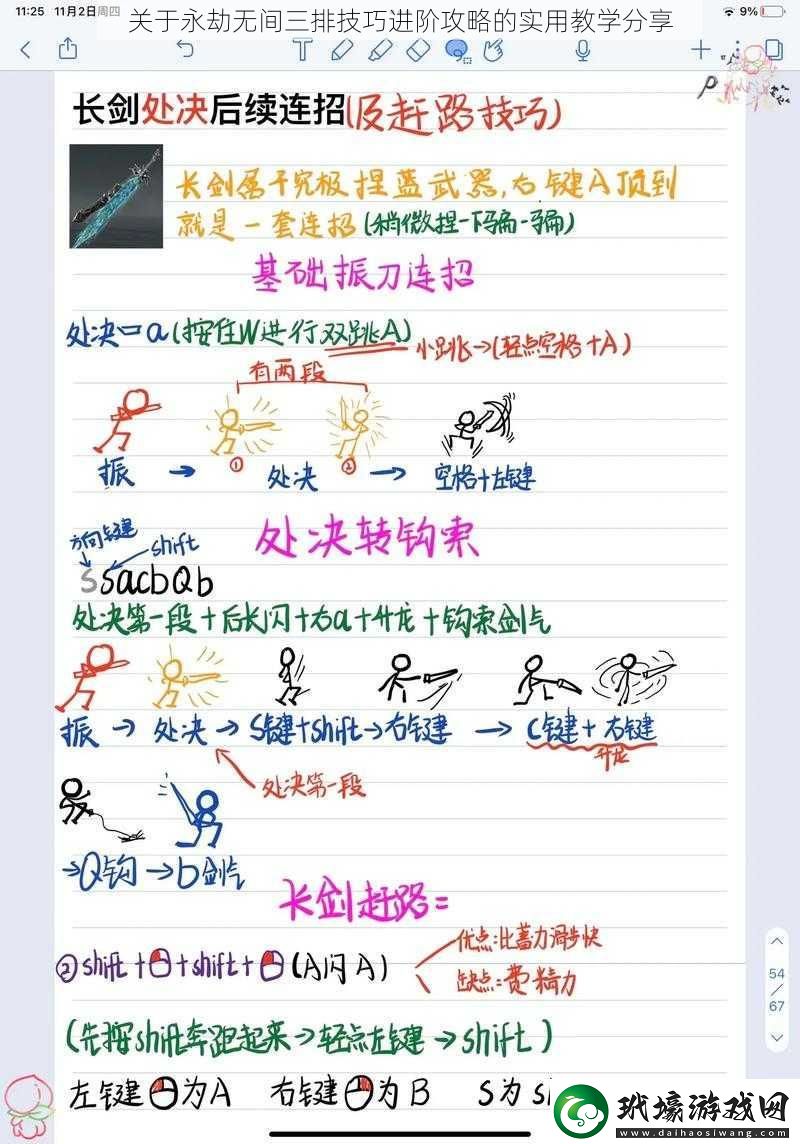 11:25 11月2日周四
关于永劫无间三排技巧进阶攻略的实用教学分享
9%
长剑处决后续连招(及赶路技巧)
长剑属于究极捏蓝武器,右键A顶到
就是一套连招(稍微捏一下骗一骗)
基础振刀连招
处决=a(按住W进行双跳A)
小跳→(轻点空格+A)
有两段
① ②
振 → 处决 → 空格+左键
处决转钩索
方向键 shift
SsacbQb
处决第一段+后长闪+右a+升龙+钩索剑气
振 → 处决 → S键+shift→右键 → C键+右键
升龙
处决第一段
→Q钩→b剑气
长剑赶路=
②shift++shift+(A闪A)
优点:比蓄力滑步快
缺点:费精力
54
67
(先按shift奔跑起来→轻点左键→shift)
左键为A 右键为B S为
玳壕游戏网
www.daihaosiwang.com